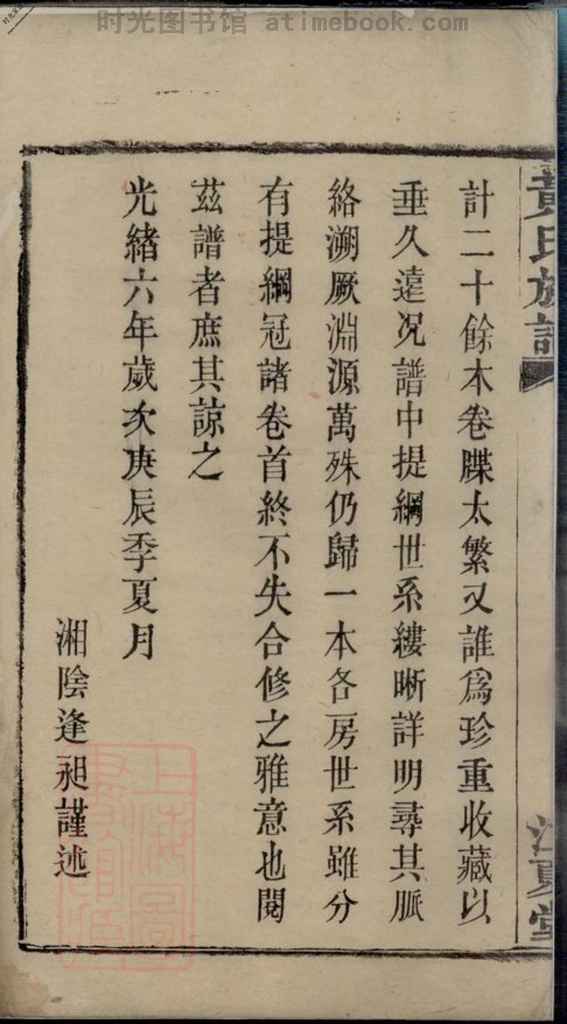 时光图书馆 atimebook.com
黄氏族譜
江夏堂
計二十餘本卷牒太繁又誰為珍重收藏以
垂久遠况譜中提綱世系縷晰詳明尋其脈
絡溯厥淵源萬殊仍歸一本各房世系雖分
有提綱冠諸卷首終不失合修之雅意也閱
茲譜者庶其諒之
光緒六年歲次庚辰季夏月
湘陰逢昶謹述